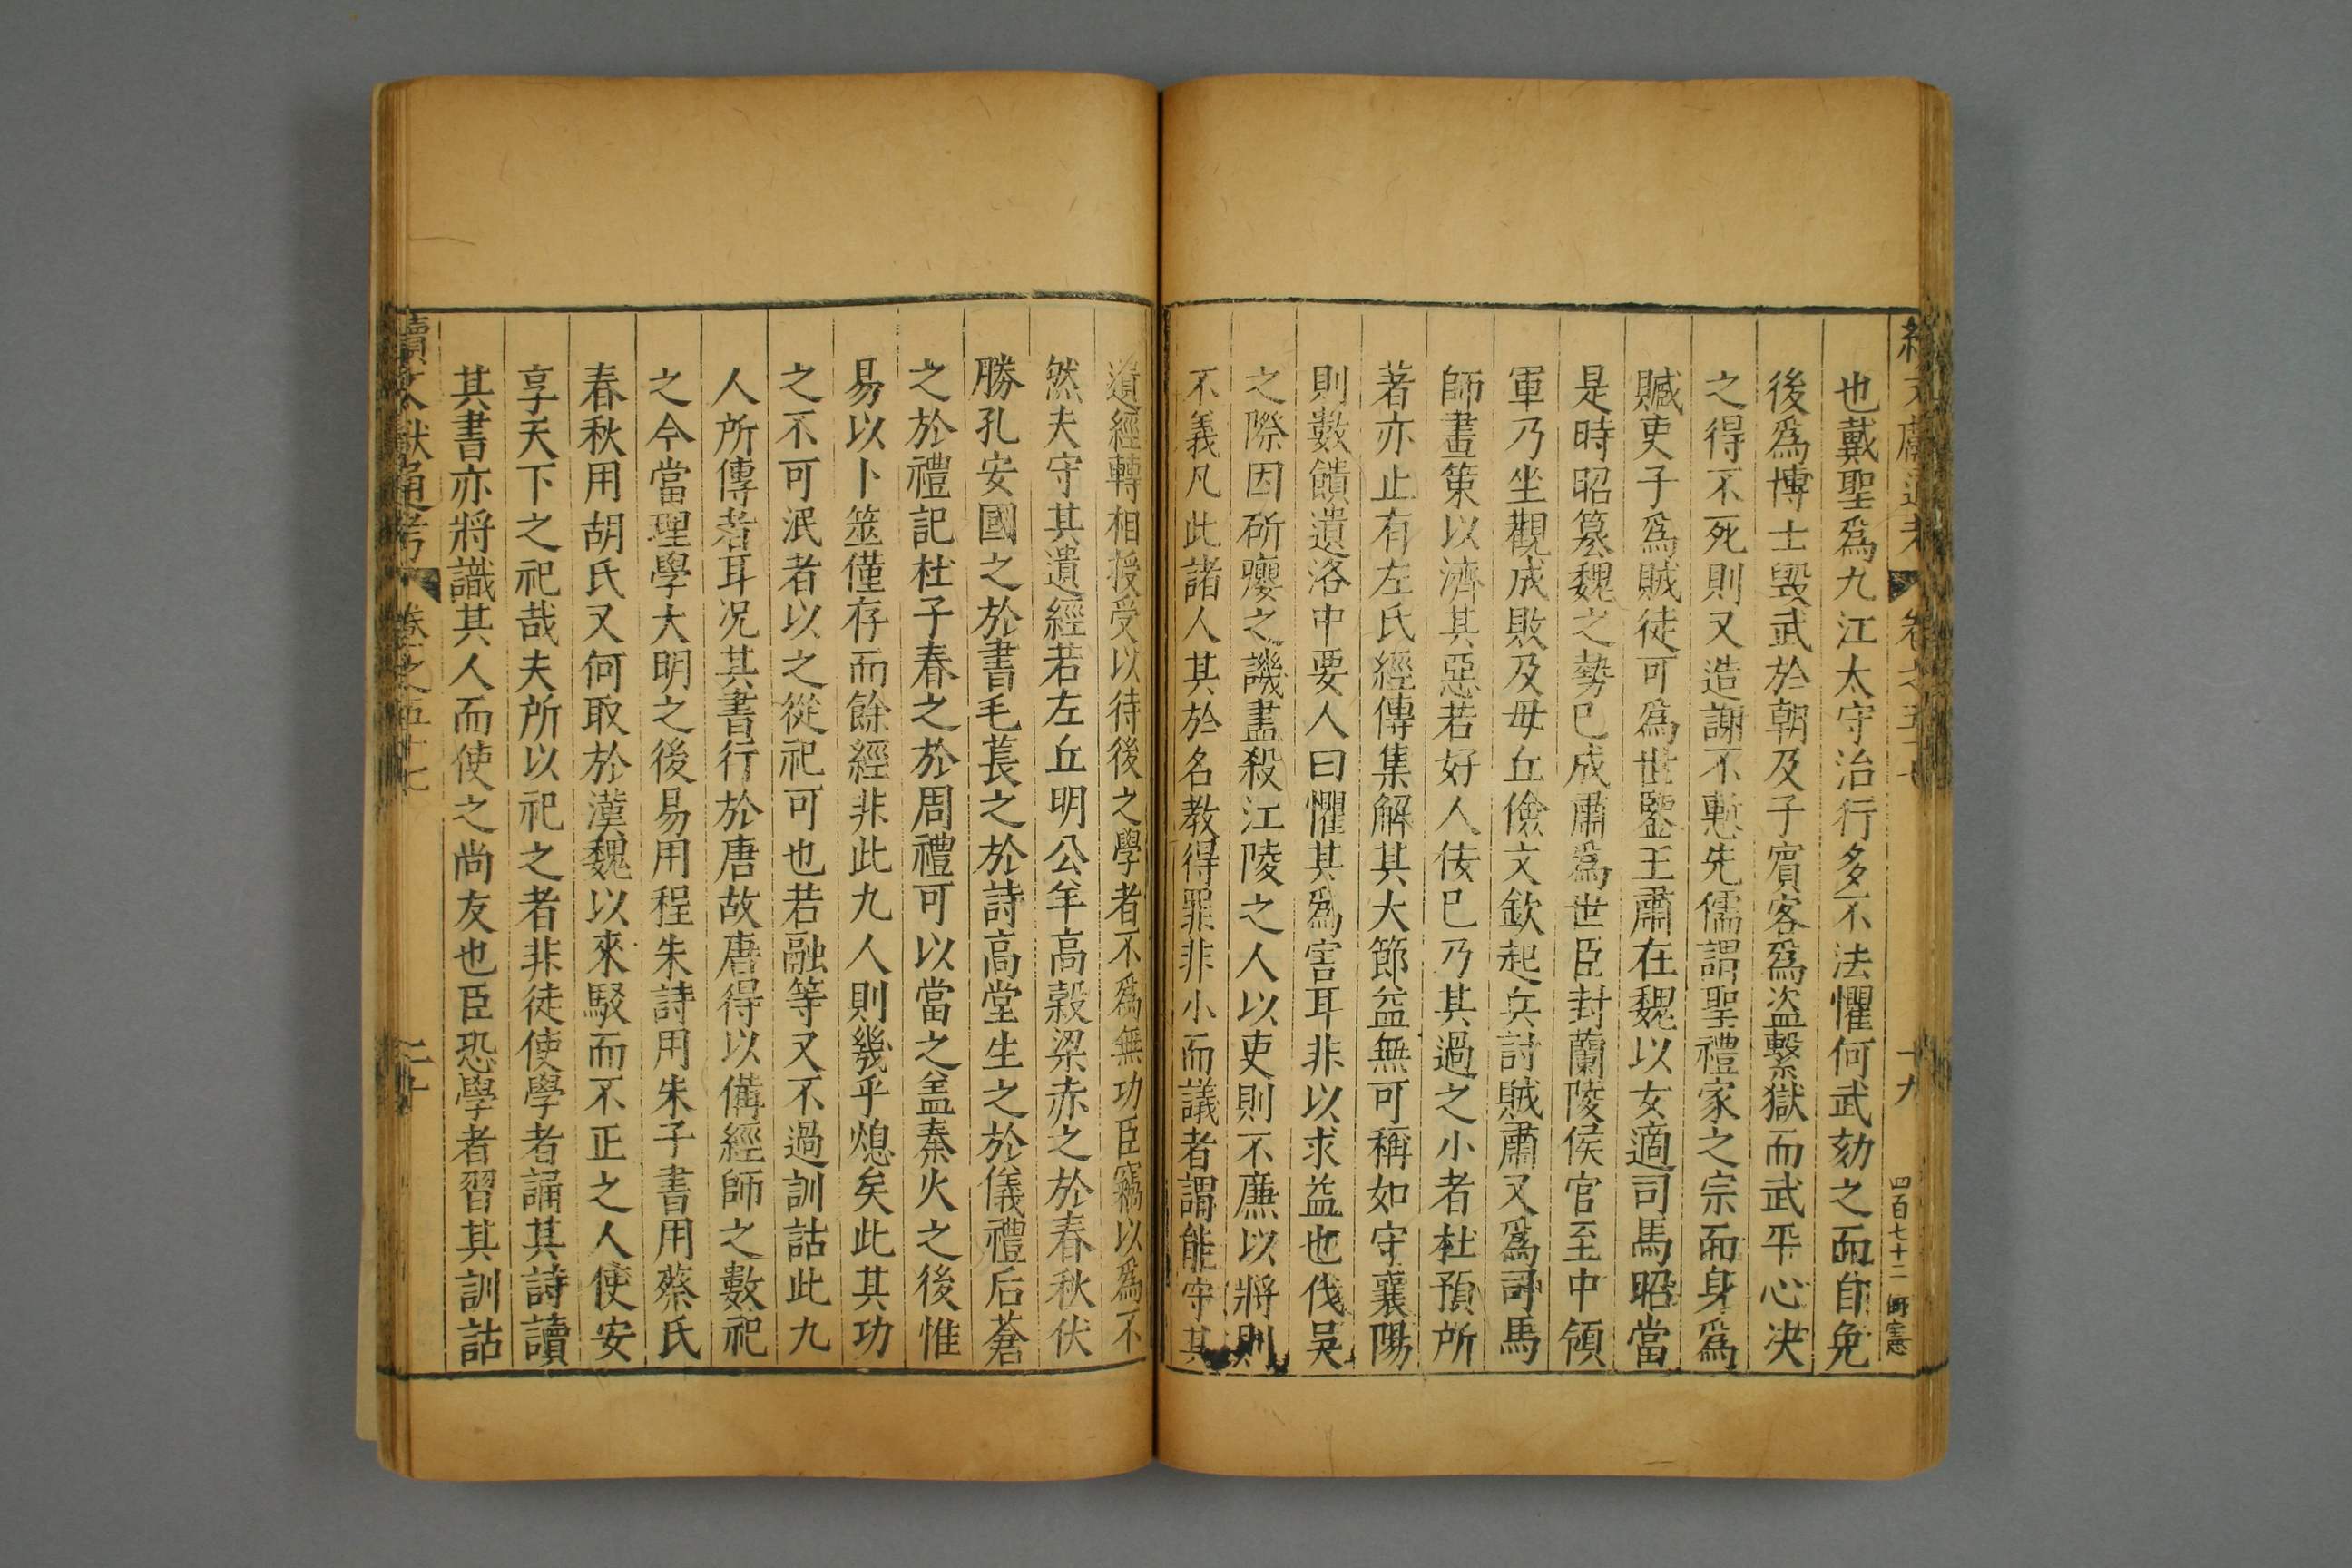 也戴聖爲九江太守治行多不法懼何武劾之而自免
後爲博士毁武於朝及子賓客爲盗繫獄而武平心决
之得不死則又造謝不慙先儒謂聖禮家之宗而身爲
贓吏子爲賊徒可爲世鑒王肅在魏以女適司馬昭當
是時昭篡魏之勢已成肅爲世臣封蘭陵侯官至中領
軍乃坐觀成敗及毋丘儉文欽起兵討賊肅又爲司馬
師畫策以濟其惡若好人佞已乃其過之小者杜預所
著亦止有左氏經傳集解其大節益無可稱如守襄陽
則數饋遺洛中要人曰懼其爲害耳非以求益也伐吳
之際因斫癭之譏盡殺江陵之人以吏則不廉以將則
不義凡此諸人其於名教得罪非小而議者謂能守其
遺經轉相授受以待後之學者不爲無功臣竊以爲不
然夫守其遺經若左丘明公羊高榖梁赤之於春秋伏
勝孔安國之於書毛萇之於詩高堂生之於儀禮后蒼
之於禮記杜子春之於周禮可以當之盖秦火之後惟
易以卜筮僅存而餘經非此九人則幾乎熄矣此其功
之不可泯者以之從祀可也若融等又不過訓詁此九
人所傳者耳况其書行於唐故唐得以備經師之數祀
之今當理學大明之後易用程朱詩用朱子書用蔡氏
春秋用胡氏又何取於漢魏以來駁而不正之人使安
享天下之祀哉夫所以祀之者非徒使學者誦其詩讀
其書亦將識其人而使之尚友也臣恐學者習其訓詁
續文獻通考 卷之五十七 二十
十九
四百七十二